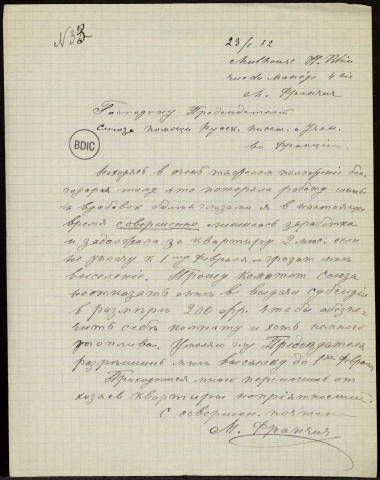 № 33
23/I 32
Mulhouse H. Rhin
М. Франчич
Господину Председателю
Союза помощи Русск. писат. и Учен.
во Франции.
BDIC
Находясь в очень тяжелом положении бла-
годаря тому что потеряла работу
и вдобавок болея глазами я в настоящее
время совершенно лишилась заработка
и задолжала за квартиру 2 мес. если
не уплачу к 1му февраля грозит мне
выселение. Прошу комитет союза
не отказать мне в выдаче субсидии
в размере 200 фр. чтобы обезпе-
чить себе комнату и хоть немного
топлива. Умоляю г-ну Председателя
разрешить мне высылку до 1го февраля
Приходится много переносить от
хозяев квартиры неприятностей.
С совершен. почтен.
М. Франчич